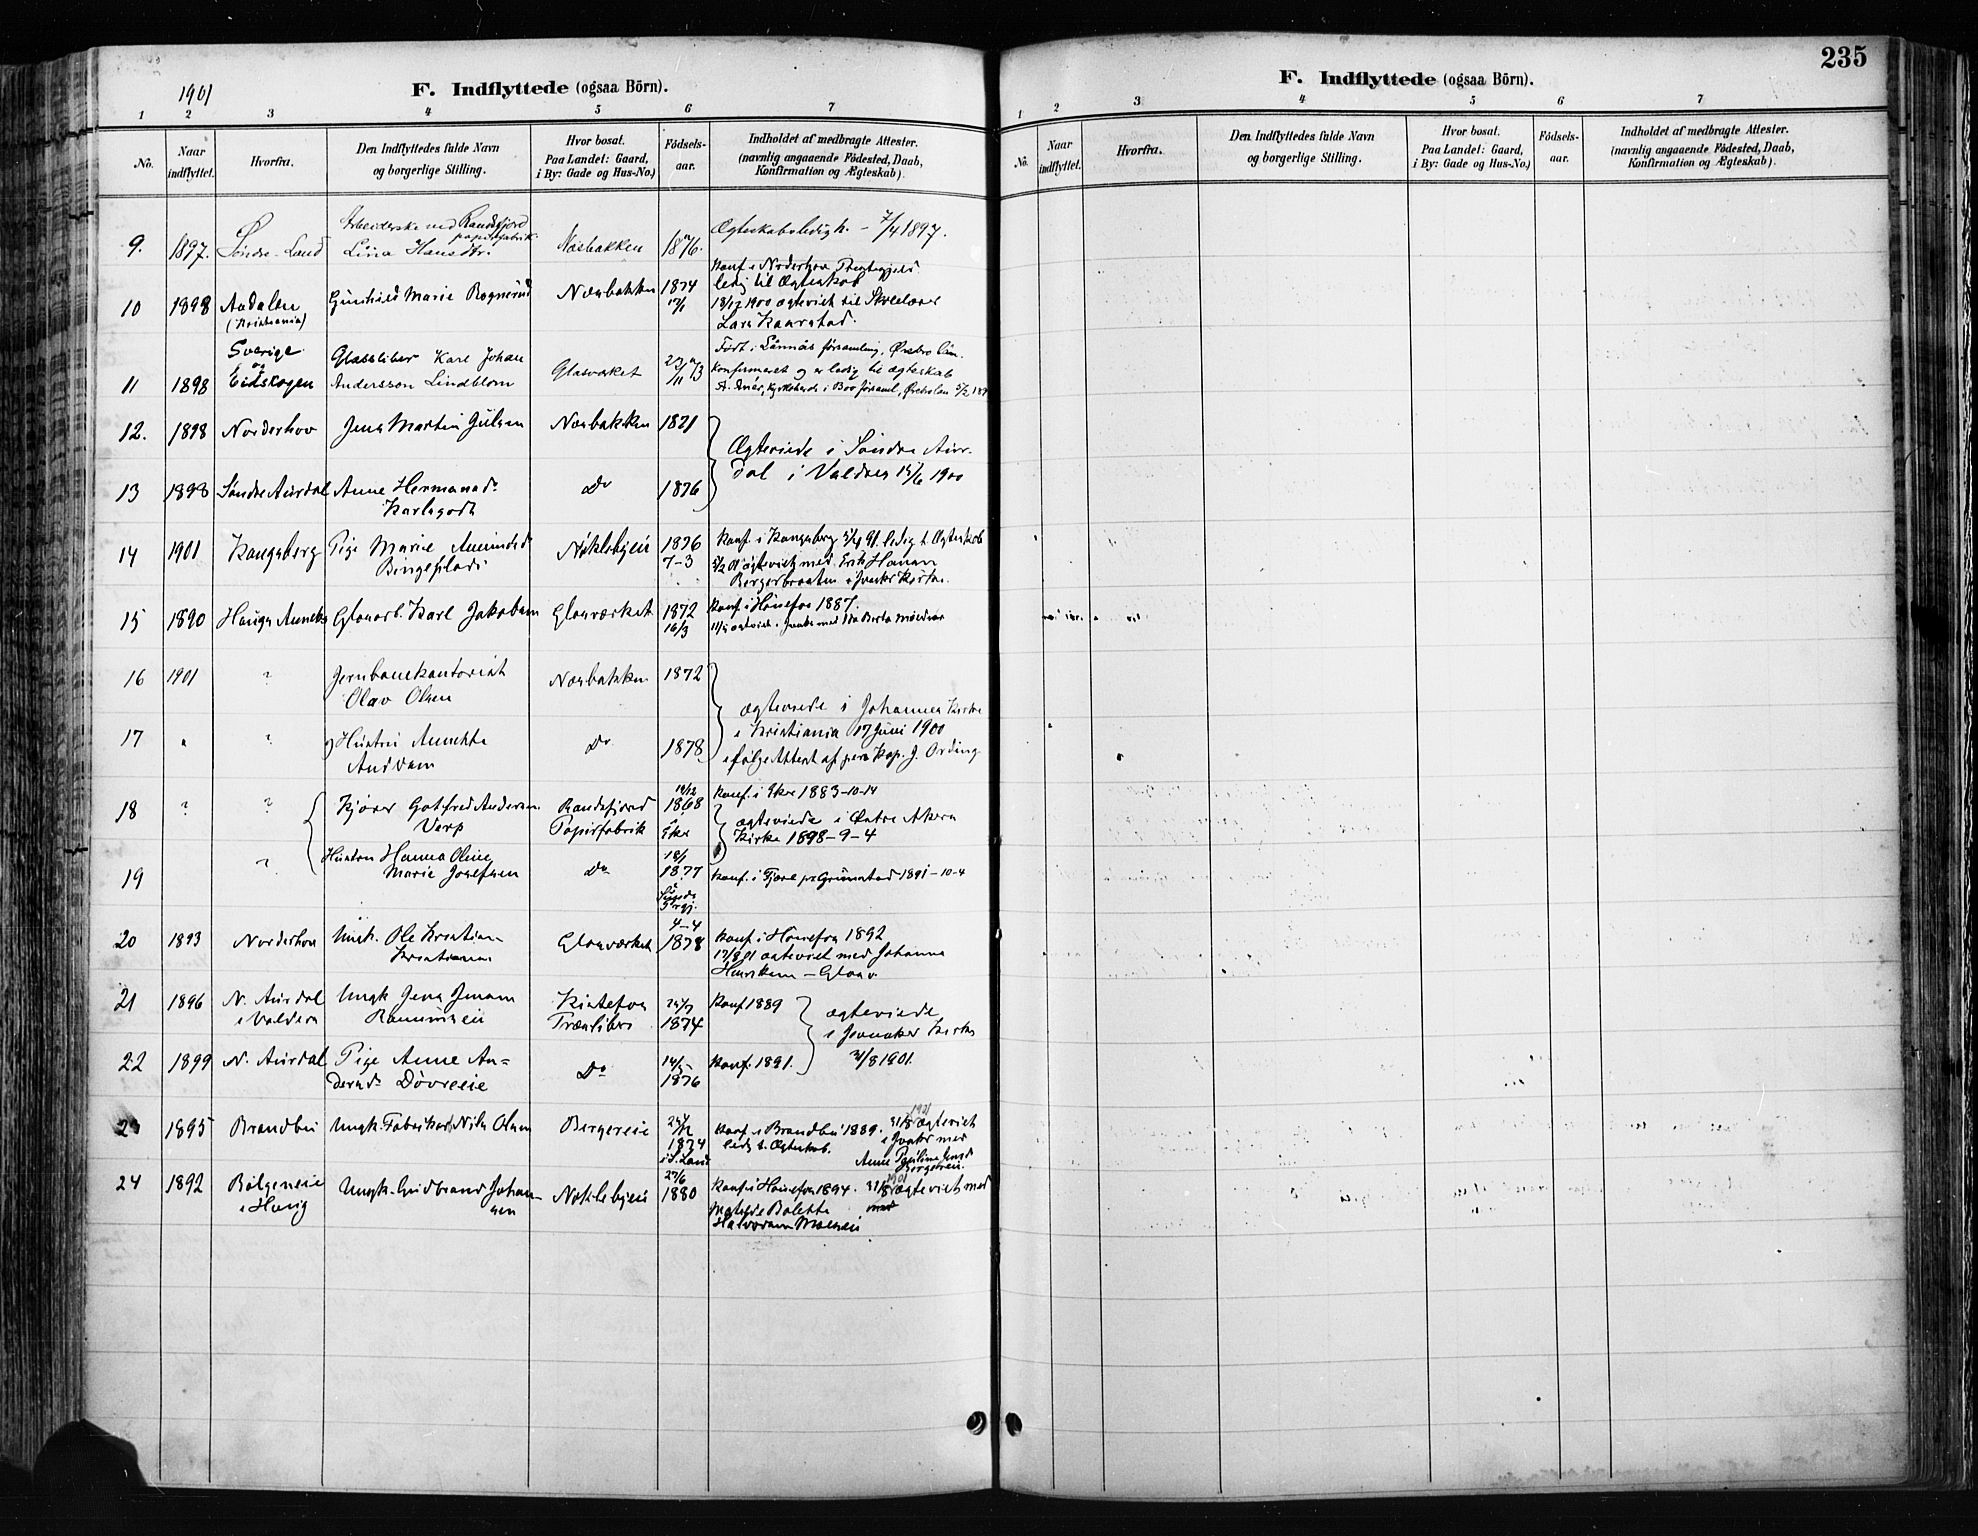 1901
F. Indflyttede (ogsaa Börn).
1 2 3 4 5 6 7
No.
Naar indflyttet.
Hvorfra.
Den Indflyttedes fulde Navn
og borgerlige Stilling.
Hvor bosat.
Paa Landet: Gaard,
i By: Gade og Hus-No.)
Födsels-
aar.
Indholdet af medbragte Attester.
(navnlig angaaende Födested, Daab,
Konfirmation og Ægteskab).
9. 1897. Søndre-Land Arbeiderske ved Randsfjord
papirfabrik
Lina Hansdtr. Næsbakken 1876. Ægteskabsledigh. - 7/4 1897.
10 1898 Aadalen
(Kristiania) Gunhild Marie Rognerud Næsbakken 1874
Konf. i Norderhov Prestegjeld
ledig til Ægteskab
18/12 1900 ægteviet til Skolelærer
Lars Kaarstad.
11 1898 Sverige
og
Eidskogen Glassliber Karl Johan
Andersson Lindblom Glasværket 23/11 73
Født i Lännäs församling, Örebro län.
Konfirmeret og er ledig til ægteskab
12. 1898 Norderhov Jens Martin Gulsen Næsbakken 1871
13 1898 Søndre Aurdal Anne Hermansd.
Karlsgodt Do 1876
Ægteviede i Søndre Aur-
dal i Valdres 15/6 1900
14 1901 Kongsberg Pige Marie Amundsd.
Bingeplads Noklebyeie 1876
7-3
Konf. i Kongsberg 5/4 91. ledig t. Ægteskab
ægteviet med Erik Hansen
Bergerbraaten i Jevnaker Kirke.
15 1890 Haugs Anneks Glasarb. Karl Jakobsen Glasværket 1872
16/3
Konf. i Hønefos 1887.
16 1901 " Jernbanekontorist
Olav Olsen Næsbakken 1872
17 " " og Hustru Annette
Do 1878
ægteviede i Johannes Kirke
i Kristiania 17 Juni 1900
ifølge Attest af pers. Kap. J. Ording
18 " " Kjører Gotfred Andersen
Verp Randsfjord
Papirfabrik 19/12
1868
Eker
Konf. i Eker 1883-10-14
ægteviede i Østre Akers
Kirke 1898-9-4
19 " Hustru Hanna Oline
Marie Josefsen Do 18/1
1877
Konf. i Fjære pr Grimstad 1891-10-4
20 1893 Norderhov Ungk. Ole Kristian
Kristiansen Glasværket 4-4
1878
Konf. i Hønefos 1892
17/8 01 ægteviet med Johanna
Henriksen - Glasv
21 1896 N. Aurdal
i Valdres Ungk Jens Jensen
Kistefos
Træsliberi 1874
Konf 1889
22 1899 N. Aurdal Pige Anne An-
dersd. Dövreeie Do 14/5
1876
Konf. 1891.
ægteviede
i Jevnaker Kirke
31/8 1901.
23 1895 Brandbu Ungk. Fabrikarb. Nils Olsen Bergereie 1874
i S. Land
Konf. i Brandbu 1889.
ledig t. Ægteskab.
1901
31/8 ægteviet
i Jevnkr med
Anne Pauline
Bergereie.
24 1892 Bølgeneie
i Haug Ungk. Gudbrand Johan-
sen Noklebyeie 27/6
1880
Konf. i Hønefos 1894. 1901
31/8 ægteviet med
Matilde Bolette
Halvorsen Moeneie
235
F. Indflyttede (ogsaa Börn).
1 2 3 4 5 6 7
No.
Naar
indflyttet.
Hvorfra.
Den Indflyttedes fulde Navn
og borgerlige Stilling.
Hvor bosat.
Paa Landet: Gaard,
i By: Gade og Hus-No.)
Födsels-
aar.
Indholdet af medbragte Attester.
(navnlig angaaende Födested, Daab,
Konfirmation og Ægteskab).